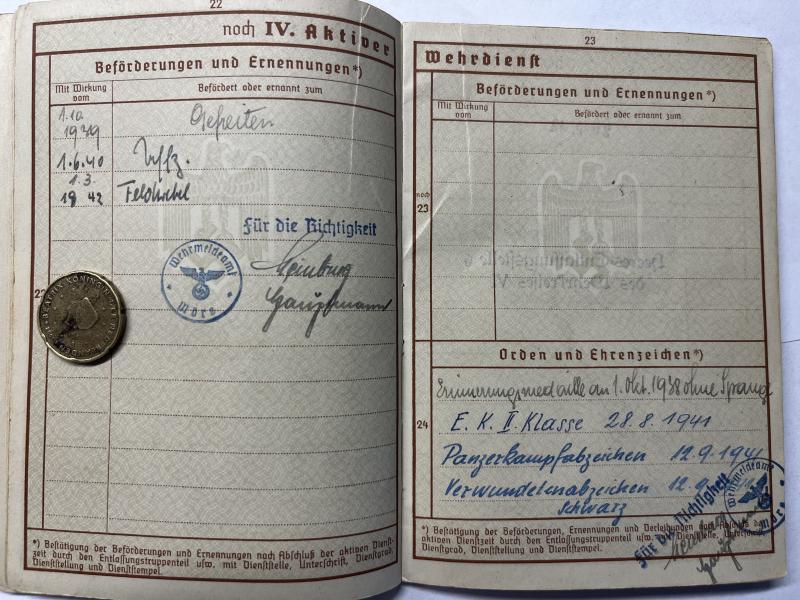 22
noch IV. Aktiver
Beförderungen und Ernennungen*)
Mit Wirkung vom
Befördert oder ernannt zum
1.10
1939
Gefreiten
1.6.40
Uffz.
1.3.
1942
Feldwebel
Für die Richtigkeit
Wehrmeldeamt
Mörs
Hauptmann
BEATRIX KONINGIN
*) Bestätigung der Beförderungen und Ernennungen nach Abschluß der aktiven Dienst-
zeit durch den Entlassungstruppenteil usw. mit Dienststelle, Unterschrift, Dienstgrad,
Dienststellung und Dienststempel.
23
Wehrdienst
Beförderungen und Ernennungen*)
Mit Wirkung vom
Befördert oder ernannt zum
noch
23
Orden und Ehrenzeichen*)
Erinnerungsmedaille an 1. Okt. 1938 ohne Spange
24
E. K. II. Klasse 28.8.1941
Panzerkampfabzeichen 12.9.1941
Verwundetenabzeichen 12.9.
schwarz
Für die Richtigkeit
Wehrmeldeamt
*) Bestätigung der Beförderungen, Ernennungen und Verleihungen nach Abschluß der
aktiven Dienstzeit durch den Entlassungstruppenteil usw. mit Dienststelle, Unterschrift,
Dienstgrad, Dienststellung und Dienststempel.